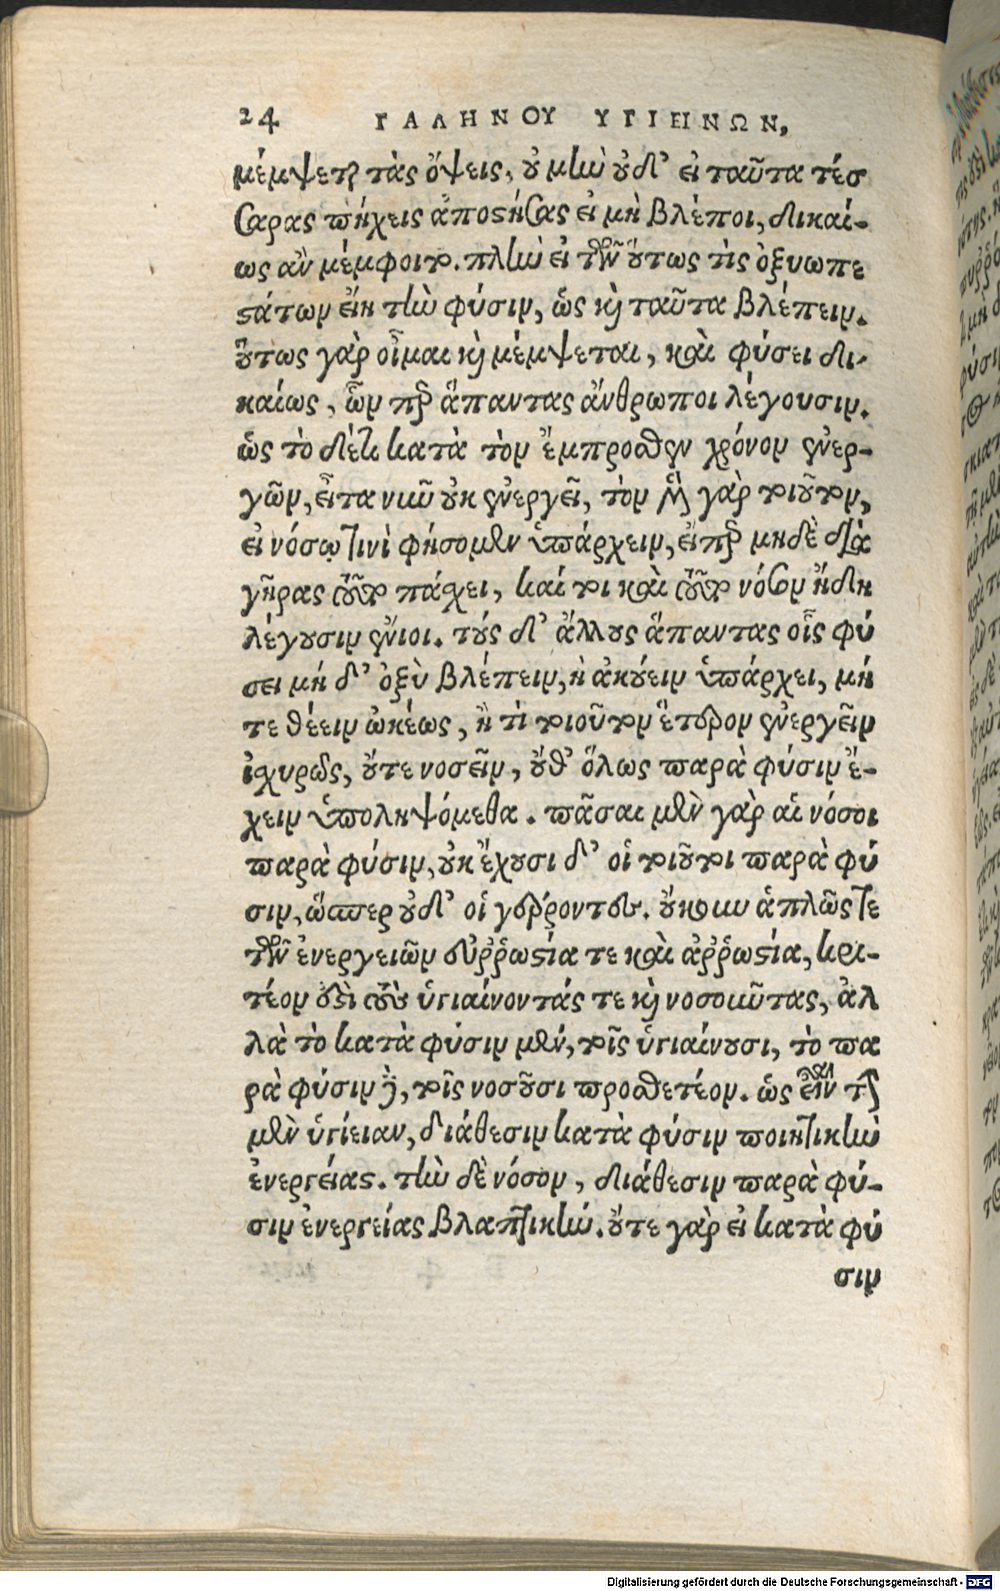 24 ΓΑΛΗΝΟΥ ΥΓΙΕΙΝΩΝ,
μέμψεται τὰς ὄψεις, οὐ μὴν οὐδ' εἰ ταῦτα τέσ
σαρας πήχεις ἀποστήσας εἰ μὴ βλέποι, δικαί-
ως ἂν μέμφοιτο. πλὴν εἰ τῶν οὕτως τὶς ὀξυωπε
στάτων εἴη τὴν φύσιν, ὡς καὶ ταῦτα βλέπειν.
οὕτως γὰρ οἶμαι καὶ μέμψεται, καὶ φύσει δι-
καίως, ὧν περ ἅπαντας ἄνθρωποι λέγουσιν.
ὡς τὸ δέκα κατὰ τὸν ἔμπροσθεν χρόνον ἐνερ-
γῶν, εἶτα νῦν οὐκ ἐνεργεῖ, τὸν γὰρ τοιοῦτον,
εἰ νόσῳ τινὶ φήσομεν ὑπάρχειν, εἴπερ μηδὲ διὰ
γῆρας τοῦτο πάχει, καί τοι καὶ τοῦτο νόσον ἤδη
λέγουσιν ἔνιοι. τούς δ' ἄλλους ἅπαντας οἷς φύ
σει μή δ' ὀξὺ βλέπειν, ἢ ἀκούειν ὑπάρχει, μή
τε θέειν ὠκέως, ἢ τὶ τοιοῦτον ἕτερον ἐνεργεῖν
ἰχυρῶς, οὔτε νοσεῖν, οὔθ' ὅλως παρὰ φύσιν ἔ-
χειν ὑποληψόμεθα. πᾶσαι μὲν γὰρ αἱ νόσοι
παρὰ φύσιν, οὐκ ἔχουσι δ' οἱ τοιοῦτοι παρὰ φύ
σιν, ὥσπερ οὐδ' οἱ γέροντες. οὔκουν ἁπλῶς τε
τῶν ἐνεργειῶν εὐῤῥωστία τε καὶ ἀῤῥωστία, κρι-
τέον ἐστὶ τοὺς ὑγιαίνοντάς τε καὶ νοσοῦντας, ἀλ
λὰ τὸ κατὰ φύσιν μὲν, τοῖς ὑγιαίνουσι, τὸ πα
ρὰ φύσιν δὲ, τοῖς νοσοῦσι προσθετέον. ὡς εἶναι τὴν
μὲν ὑγίειαν, διάθεσιν κατὰ φύσιν ποιητικὴν
ἐνεργείας. τὴν δὲ νόσον, διάθεσιν παρὰ φύ-
σιν ἐνεργείας βλαπτικήν. οὔτε γὰρ εἰ κατὰ φύ
σιν
Digitalisierung gefördert durch die Deutsche Forschungsgemeinschaft - DFG